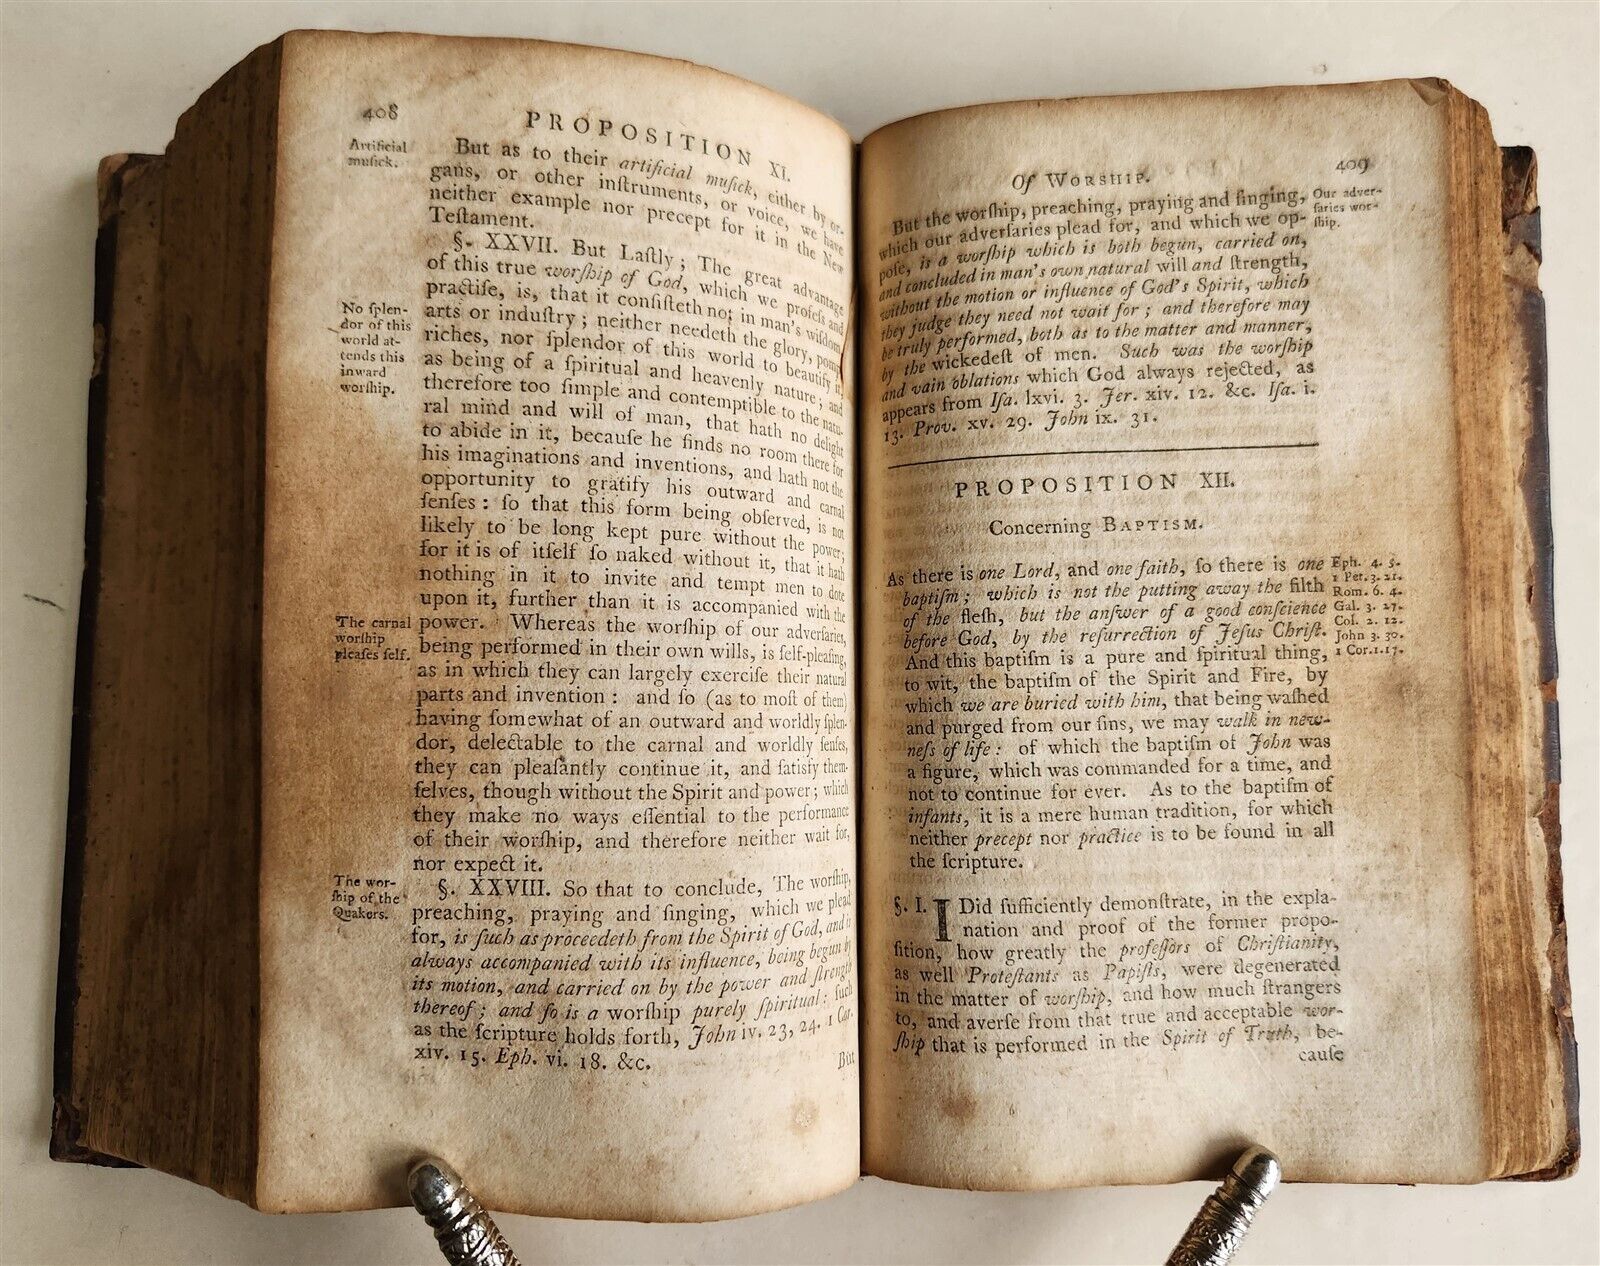 408
PROPOSITION XI.
Artificial
muſick.
But as to their artificial muſick, either by or-
gans, or other inſtruments, or voice, we have
neither example nor precept for it in the New
Teſtament.
§. XXVII. But Laſtly; The great advantage
of this true worſhip of God, which we profeſs and
practiſe, is, that it conſiſteth not in man's wiſdom,
arts or induſtry; neither needeth the glory, pomp,
No ſplen-
dor of this
world at-
tends this
inward
worſhip.
riches, nor ſplendor of this world to beautify it,
as being of a ſpiritual and heavenly nature; and
therefore too ſimple and contemptible to the natu-
ral mind and will of man, that hath no delight
to abide in it, becauſe he finds no room there for
his imaginations and inventions, and hath not the
opportunity to gratify his outward and carnal
ſenſes: ſo that this form being obſerved, is not
likely to be long kept pure without the power;
for it is of itſelf ſo naked without it, that it hath
nothing in it to invite and tempt men to dote
upon it, further than it is accompanied with the
The carnal
worſhip
pleaſes ſelf.
power. Whereas the worſhip of our adverſaries,
being performed in their own wills, is ſelf-pleaſing,
as in which they can largely exerciſe their natural
parts and invention: and ſo (as to moſt of them)
having ſomewhat of an outward and worldly ſplen-
dor, delectable to the carnal and worldly ſenſes,
they can pleaſantly continue it, and ſatisfy them-
ſelves, though without the Spirit and power; which
they make no ways eſſential to the performance
of their worſhip, and therefore neither wait for,
nor expect it.
The wor-
ſhip of the
Quakers.
§. XXVIII. So that to conclude, The worſhip,
preaching, praying and ſinging, which we plead
for, is ſuch as proceedeth from the Spirit of God, and is
always accompanied with its influence, being begun by
its motion, and carried on by the power and ſtrength
thereof; and ſo is a worſhip purely ſpiritual: ſuch
as the ſcripture holds forth, John iv. 23, 24. 1 Cor.
xiv. 15. Eph. vi. 18. &c.
But
Of WORSHIP.
409
But the worſhip, preaching, praying and ſinging,
which our adverſaries plead for, and which we op-
poſe, is a worſhip which is both begun, carried on,
and concluded in man's own natural will and ſtrength,
without the motion or influence of God's Spirit, which
they judge they need not wait for; and therefore may
be truly performed, both as to the matter and manner,
by the wickedeſt of men. Such was the worſhip
and vain oblations which God always rejected, as
appears from Iſa. lxvi. 3. Jer. xiv. 12. &c. Iſa. i.
13. Prov. xv. 29. John ix. 31.
Our adver-
ſaries wor-
ſhip.
PROPOSITION XII.
Concerning BAPTISM.
As there is one Lord, and one faith, ſo there is one
baptiſm; which is not the putting away the filth
of the fleſh, but the anſwer of a good conſcience
before God, by the reſurrection of Jeſus Chriſt.
And this baptiſm is a pure and ſpiritual thing,
to wit, the baptiſm of the Spirit and Fire, by
which we are buried with him, that being waſhed
and purged from our ſins, we may walk in new-
neſs of life: of which the baptiſm of John was
a figure, which was commanded for a time, and
not to continue for ever. As to the baptiſm of
infants, it is a mere human tradition, for which
neither precept nor practice is to be found in all
the ſcripture.
Eph. 4. 5.
1 Pet. 3. 21.
Rom. 6. 4.
Gal. 3. 27.
Col. 2. 12.
John 3. 30.
1 Cor. 1. 17.
§. I. I Did ſufficiently demonſtrate, in the expla-
nation and proof of the former propo-
ſition, how greatly the profeſſors of Chriſtianity,
as well Proteſtants as Papiſts, were degenerated
in the matter of worſhip, and how much ſtrangers
to, and averſe from that true and acceptable wor-
ſhip that is performed in the Spirit of Truth, be-
cauſe